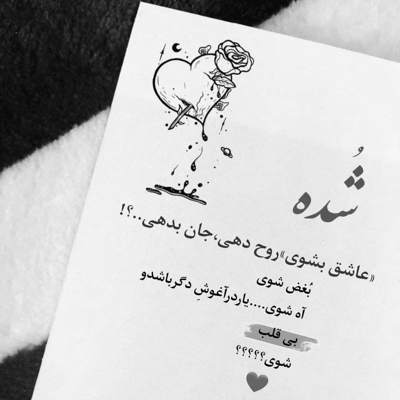 شُده
«عاشق بشوی» روح دهی،جان بدهی..؟!
بُغض شوی
آه شوی....یاردرآغوشِ دگرباشدو
بی قلب
شوی؟؟؟؟؟